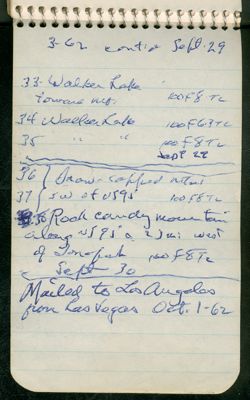 3-62 cont'd Sept. 29
33 - Walker Lake
toward mt. 100 F8 TL
34 Walker Lake 100 F6.3 TL
35 " " 100 F8 TL
Sept 29
36 } Snow-capped mtns
37 } SW of US95 100 F8 TL
38 Rock candy mountain
along US95 2 mi west
of Tonopah 100 F8 TL
Sept 30
Mailed to Los Angeles
from Las Vegas Oct. 1-62